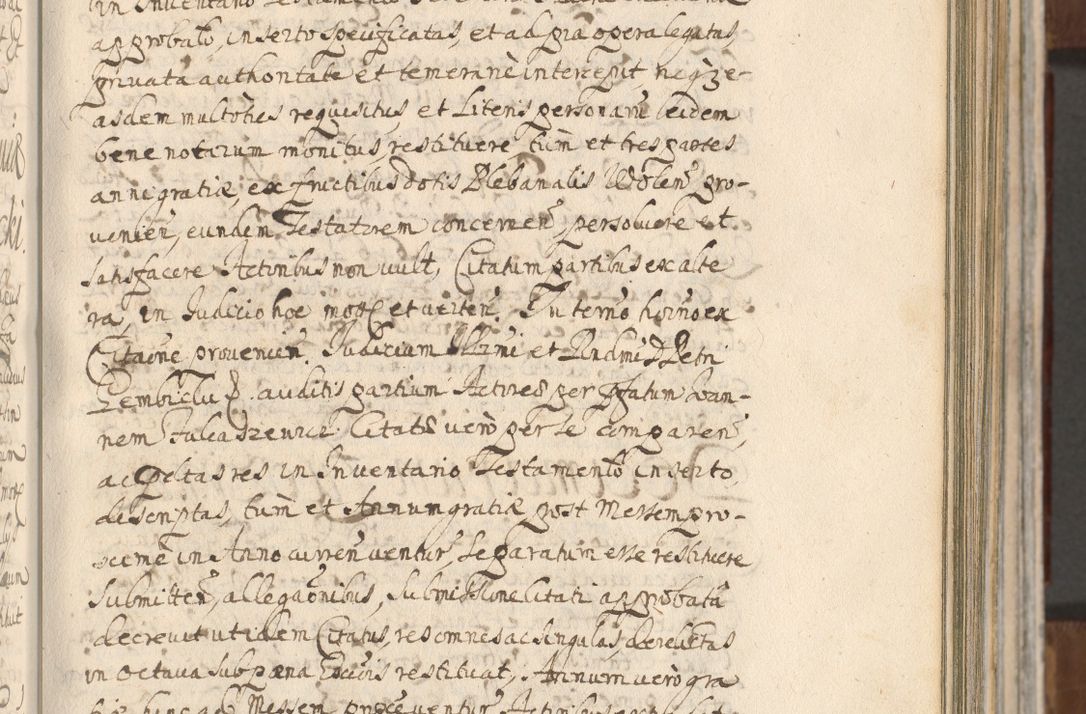 approbato, inserto specificatas, et ad pia opera legatas
privata authoritate et temerariè intercepit, neqz e-
asdem multoties requisitus et Literis personarũ eidem
bene notarum monitus, restituere, tũm et tres partes
anni gratiæ, ex fructibus dotis Plebanalis Wolen̄ pro-
venien̄, eundem Testatorem concernen̄ persolvere et
satisfacere Actoribus non vult, Citatum partibus ex alte
ra, in Judicio hoc mot et verten̄. In termo hõrno ex
Citãone provenien̄. Judicium Illrmi et Rndmi D Petri
Gembiclu auditis partium Actores per ffatum Joan-
nem Citatus verò per se comparen̄,
ac res in Inventario Testamento inserto
descriptas, tũm et Annum gratiæ post Messem pro-
xime in Anno curren̄ ventur̄, se paratum esse restituere
submitten̄, allegãonibus, submissione Citati approbata
decrevit ut idem Citatus, res omnes ac singulas derelictas
in octava sub pæna Excõis restituat, Annum verò gra
tiæ hinc ad Messem proxe ventur̄ Actoribus